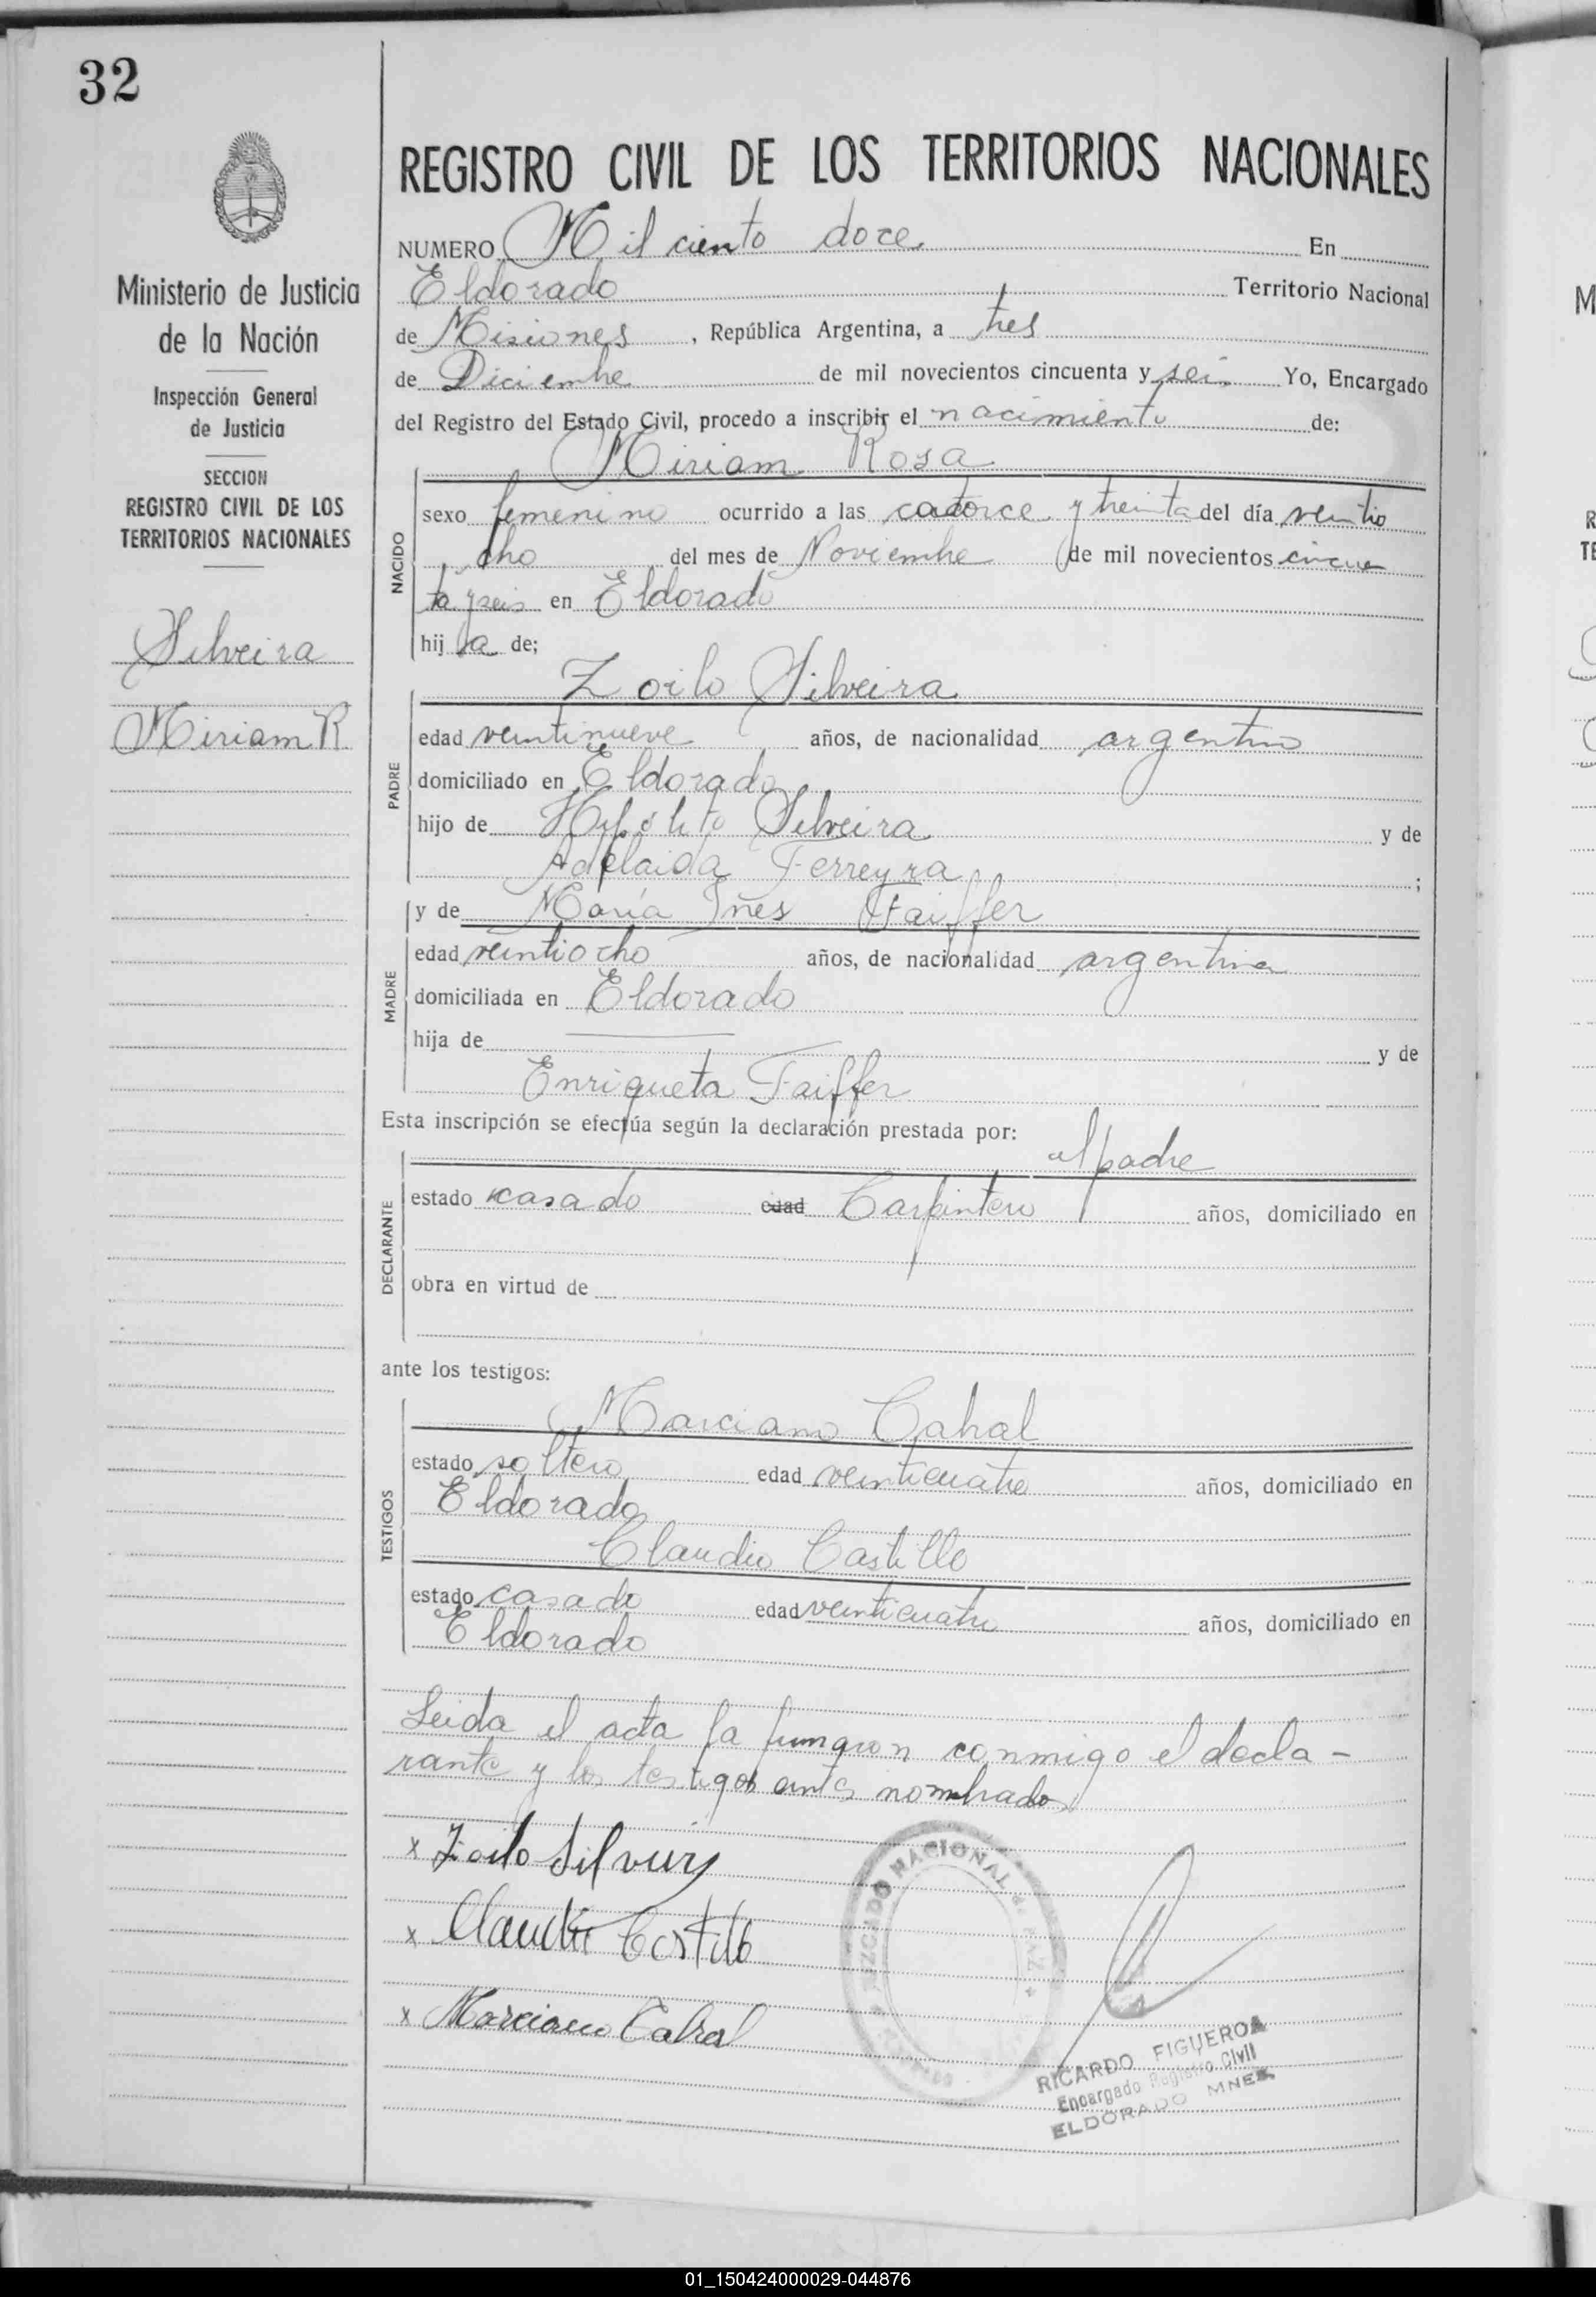 32
Ministerio de Justicia
de la Nación
Inspección General
de Justicia
SECCION
REGISTRO CIVIL DE LOS
TERRITORIOS NACIONALES
Silveira
Miriam R
REGISTRO CIVIL DE LOS TERRITORIOS NACIONALES
NUMERO Mil ciento doce En
Eldorado Territorio Nacional
de Misiones, República Argentina, a tres
de Diciembre de mil novecientos cincuenta y seis Yo, Encargado
del Registro del Estado Civil, procedo a inscribir el nacimiento de:
Miriam Rosa
NACIDO
sexo femenino ocurrido a las catorce y treinta del día veintio
cho del mes de Noviembre de mil novecientos cincuen
ta y seis en Eldorado
hij a de;
Zoilo Silveira
PADRE
edad veintinueve años, de nacionalidad argentino
domiciliado en Eldorado
hijo de Hipólito Silveira y de
Adelaida Ferreyra ;
y de María Ines Faiffer
MADRE
edad veintiocho años, de nacionalidad argentina
domiciliada en Eldorado
hija de — y de
Enriqueta Faiffer
Esta inscripción se efectúa según la declaración prestada por:
el padre
DECLARANTE
estado casado edad Carpintero años, domiciliado en
obra en virtud de
ante los testigos:
Marciano Cabral
TESTIGOS
estado soltero edad veinticuatro años, domiciliado en
Eldorado
Claudio Castillo
estado casado edad veinticuatro años, domiciliado en
Eldorado
Leida el acta la firmaron conmigo el decla-
rante y los testigos antes nombrados
x Zoilo Silveira
x Claudio Castillo
x Marciano Cabral
JUZGADO NACIONAL de PAZ
RICARDO FIGUEROA
Encargado Registro Civil
ELDORADO MNES.
01_150424000029-044876